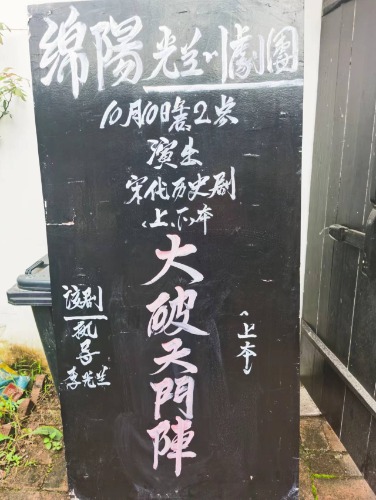 綿陽光兰川劇團
10月10日農2岁
演出
宋代历史剧
（上.下本
大破天門陣
（上本）
该剧
执导
李光兰